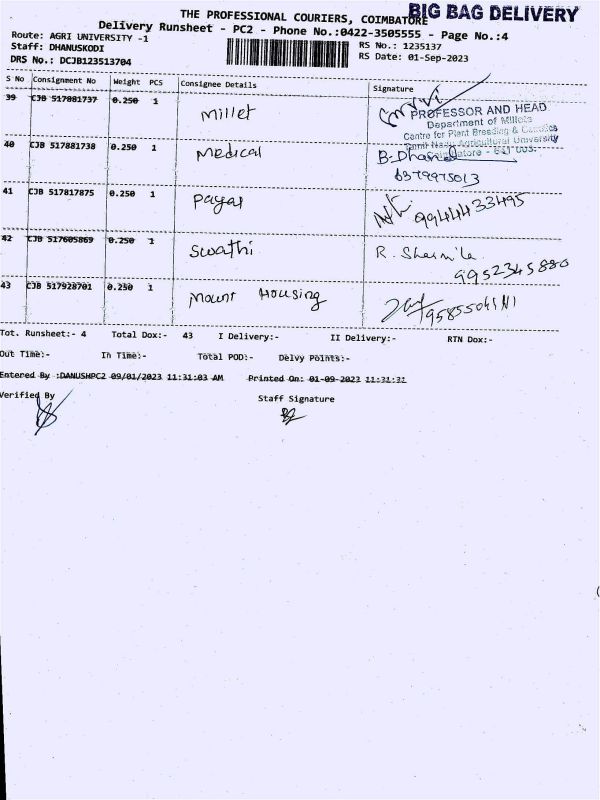 THE PROFESSIONAL COURIERS, COIMBATORE
BIG BAG DELIVERY
Delivery Runsheet - PC2 - Phone No.:0422-3505555 - Page No.:4
Route: AGRI UNIVERSITY -1
Staff: DHANUSKODI
DRS No.: DCJB123513704
RS No.: 1235137
RS Date: 01-Sep-2023
S No Consignment No Weight PCS Consignee Details Signature
39 CJB 517881737 0.250 1 Millet
PROFESSOR AND HEAD
Department of Millets
Centre for Plant Breeding & Genetics
Tamil Nadu Agricultural University
40 CJB 517881738 0.250 1 Medical
6379975013
41 CJB 517817875 0.250 1 Payar 9944433495
42 CJB 517605869 0.250 1 Swathi R. Sharmila
9952345880
43 CJB 517928701 0.250 1 Mount Housing
Tot. Runsheet:- 4 Total Dox:- 43 I Delivery:- II Delivery:- RTN Dox:-
Out Time:- In Time:- Total POD:- Delvy Points:-
Entered By :DANUSHPC2 09/01/2023 11:31:03 AM Printed On: 01-09-2023 11:31:31
Verified By Staff Signature